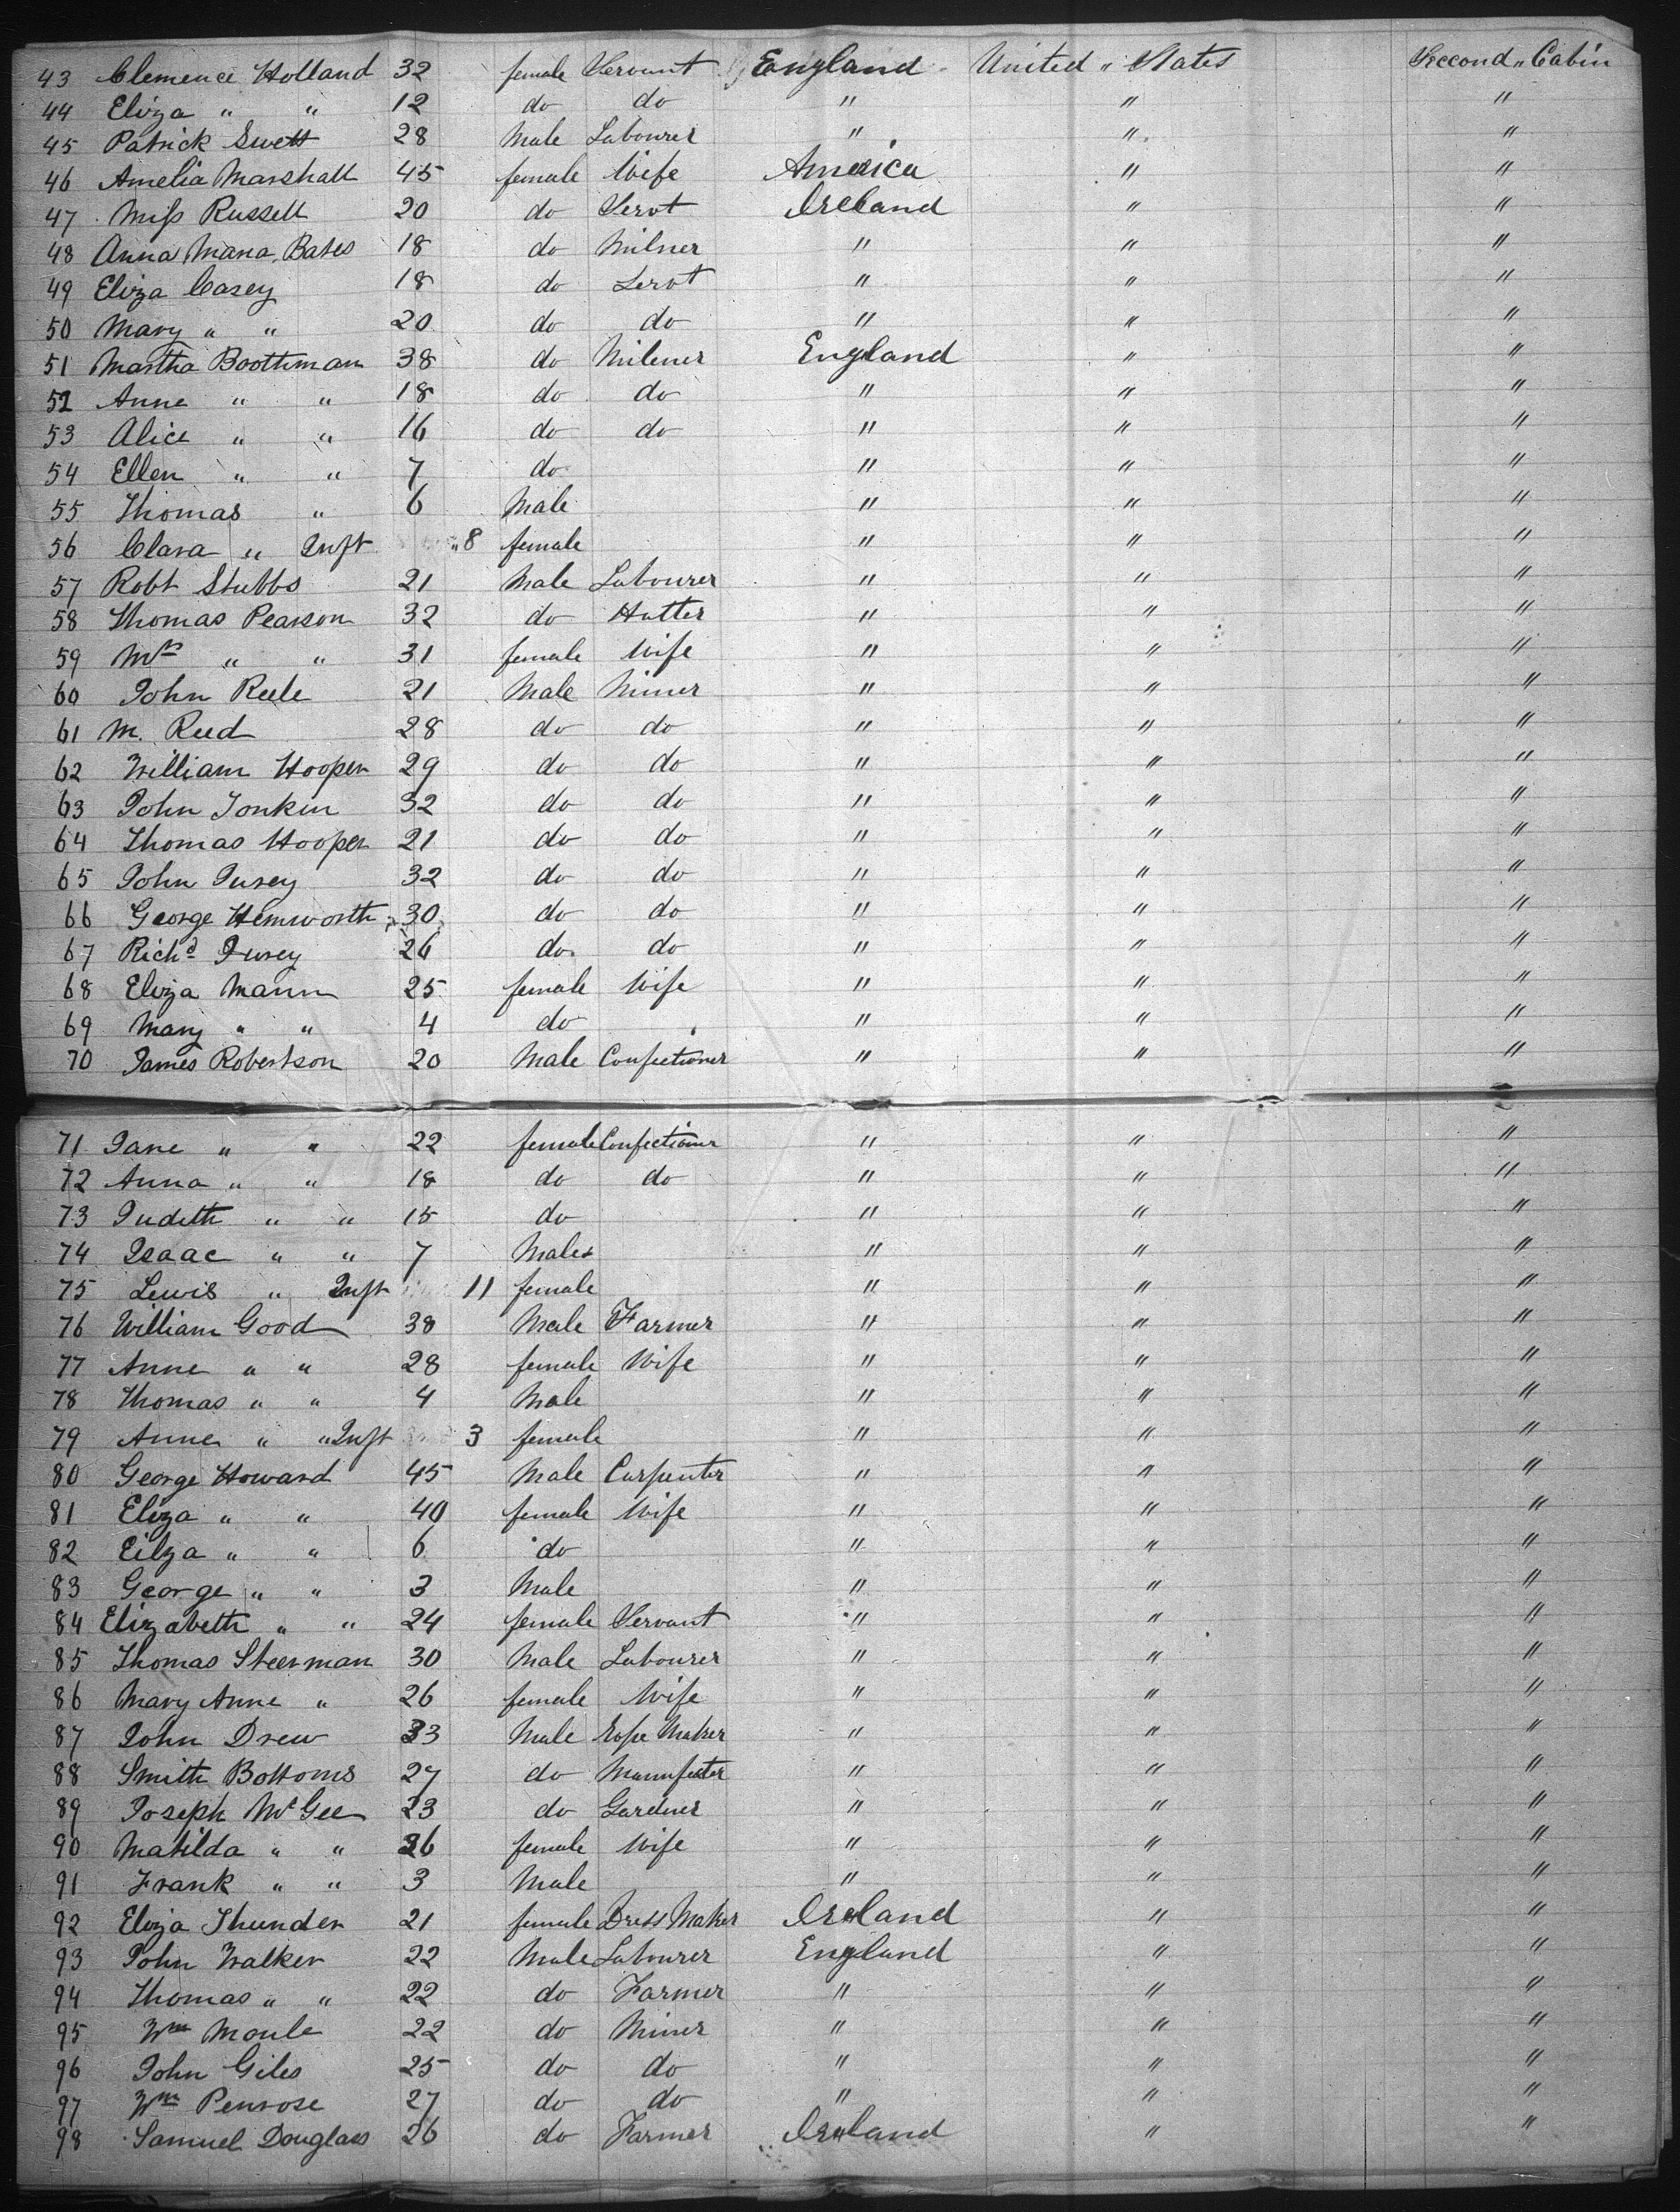 43 Clemence Holland 32 female Servant England United " States Seccond " Cabin
44 Eliza " " 12 do do " " "
45 Patrick Swett 28 Male Labourer " " "
46 Amelia Marshall 45 female Wife America " "
47 Miss Russell 20 do Servt Ireland " "
48 Anna Maria Bates 18 do Milner " " "
49 Eliza Casey 18 do Servt " " "
50 Mary " " 20 do do " " "
51 Martha Boothman 38 do Milener England " "
52 Anne " " 18 do do " " "
53 Alice " " 16 do do " " "
54 Ellen " " 7 do " " "
55 Thomas " 6 Male " " "
56 Clara " Inft " 8 female " " "
57 Robt Stubbs 21 Male Labourer " " "
58 Thomas Pearson 32 do Hatter " " "
59 Mrs " " 31 female Wife " " "
60 John Rule 21 Male Miner " " "
61 M. Reed 28 do do " " "
62 William Hooper 29 do do " " "
63 John Tonkin 32 do do " " "
64 Thomas Hooper 21 do do " " "
65 John Jusey 32 do do " " "
66 George Hemworth 30 do do " " "
67 Richd Jusey 26 do do " " "
68 Eliza Mann 25 female Wife " " "
69 Mary " " 4 do " " "
70 James Robertson 20 Male Confectioner " " "
71 Jane " " 22 female Confectioner " " "
72 Anna " " 18 do do " " "
73 Judith " " 15 do " " "
74 Isaac " " 7 Male " " "
75 Lewis " Inft 11 female " " "
76 William Good 38 Male Farmer " " "
77 Anne " " 28 female Wife " " "
78 Thomas " " 4 Male " " "
79 Anne " " Inft 3 female " " "
80 George Howard 45 Male Carpenter " " "
81 Eliza " " 40 female Wife " " "
82 Eilza " " 6 do " " "
83 George " " 3 Male " " "
84 Elizabeth " " 24 female Servant " " "
85 Thomas Steerman 30 Male Labourer " " "
86 Mary Anne " 26 female Wife " " "
87 John Drew 33 Male Rope Maker " " "
88 Smith Bottoms 27 do Manufacter " " "
89 Joseph McGee 23 do Gardner " " "
90 Matilda " " 26 female Wife " " "
91 Frank " " 3 Male " " "
92 Eliza Thunder 21 female Dress Maker Ireland " "
93 John Walker 22 Male Labourer England " "
94 Thomas " " 22 do Farmer " " "
95 Wm Moule 22 do Miner " " "
96 John Giles 25 do do " " "
97 Wm Penrose 27 do do " " "
98 Samuel Douglas 26 do Farmer Ireland " "